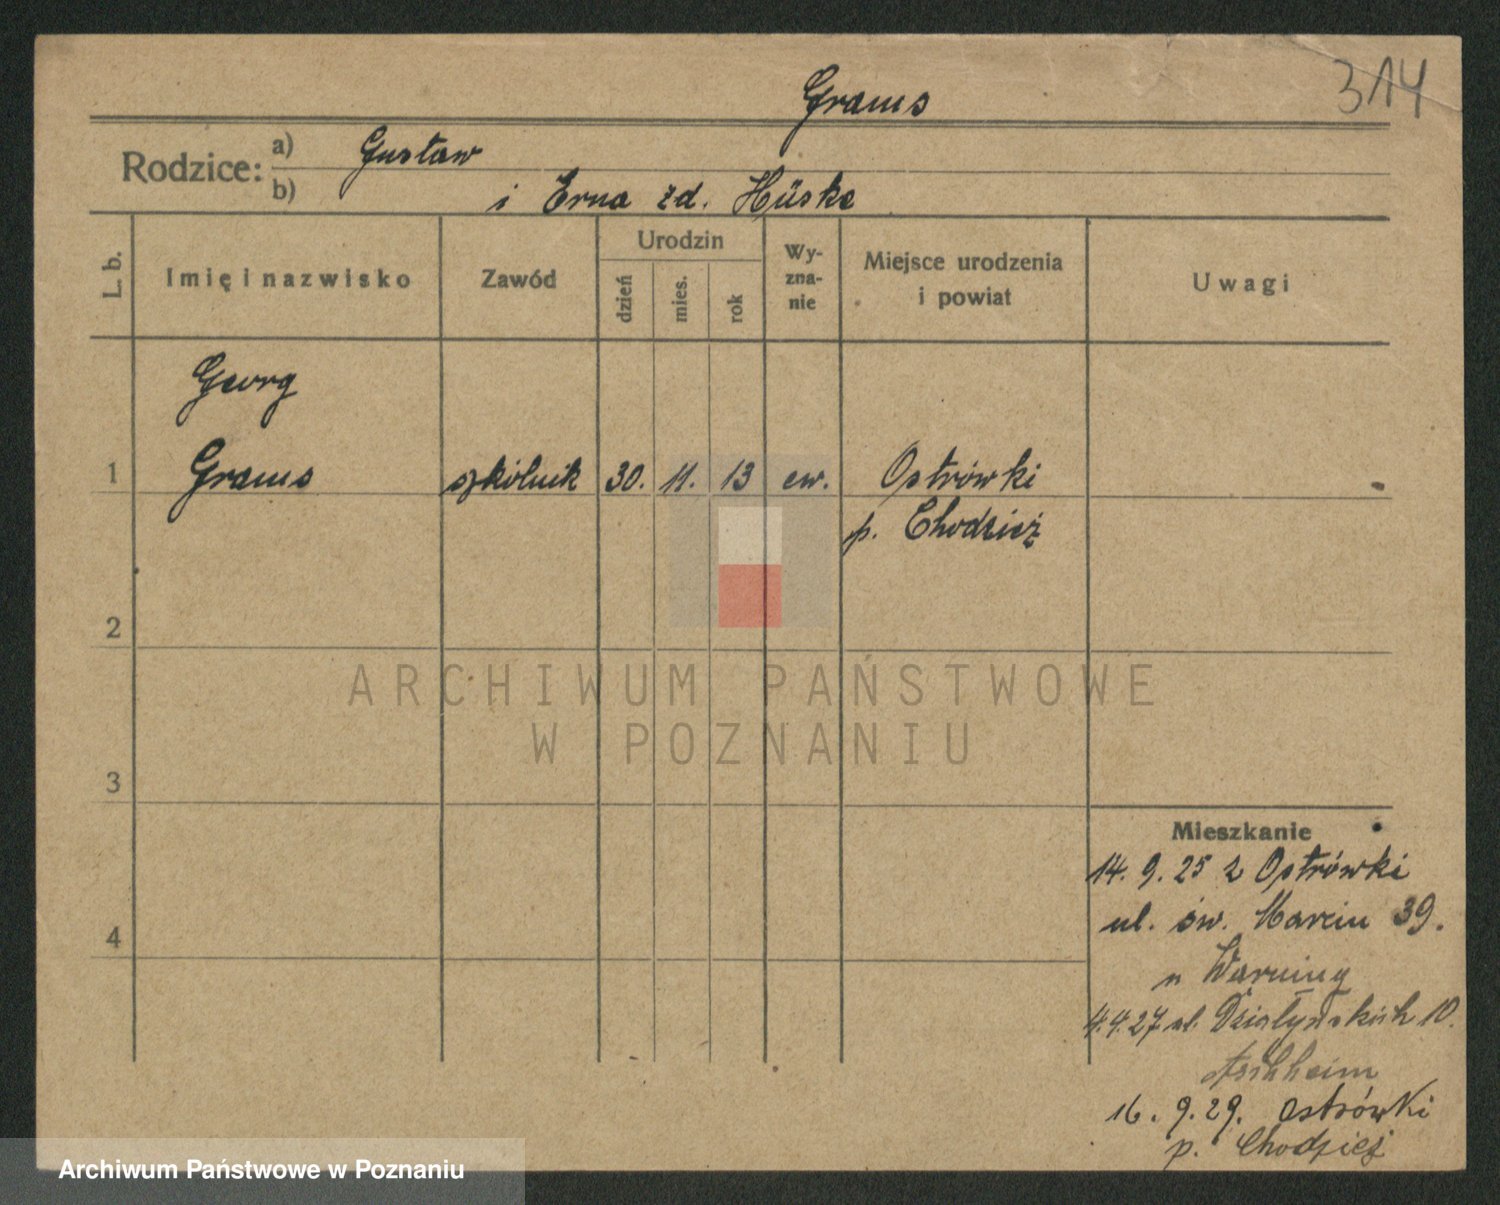 314
Grams
Rodzice: a) Gustaw
b) i Erna zd. Hüske
L. b.
Imię i nazwisko
Zawód
Urodzin
dzień
mies.
rok
Wy-
zna-
nie
Miejsce urodzenia
i powiat
Uwagi
Georg
1 Grams szkólnik 30. 11. 13 ew. Ostrówki
p. Chodzież
2
3
4
ARCHIWUM PAŃSTWOWE
W POZNANIU
Mieszkanie
14. 9. 25 z Ostrówki
ul. św. Marcin 39.
u Warning
4.4.27 ul. Działyńskich 10.
Aschheim
16. 9. 29. Ostrówki
p. Chodzież
Archiwum Państwowe w Poznaniu